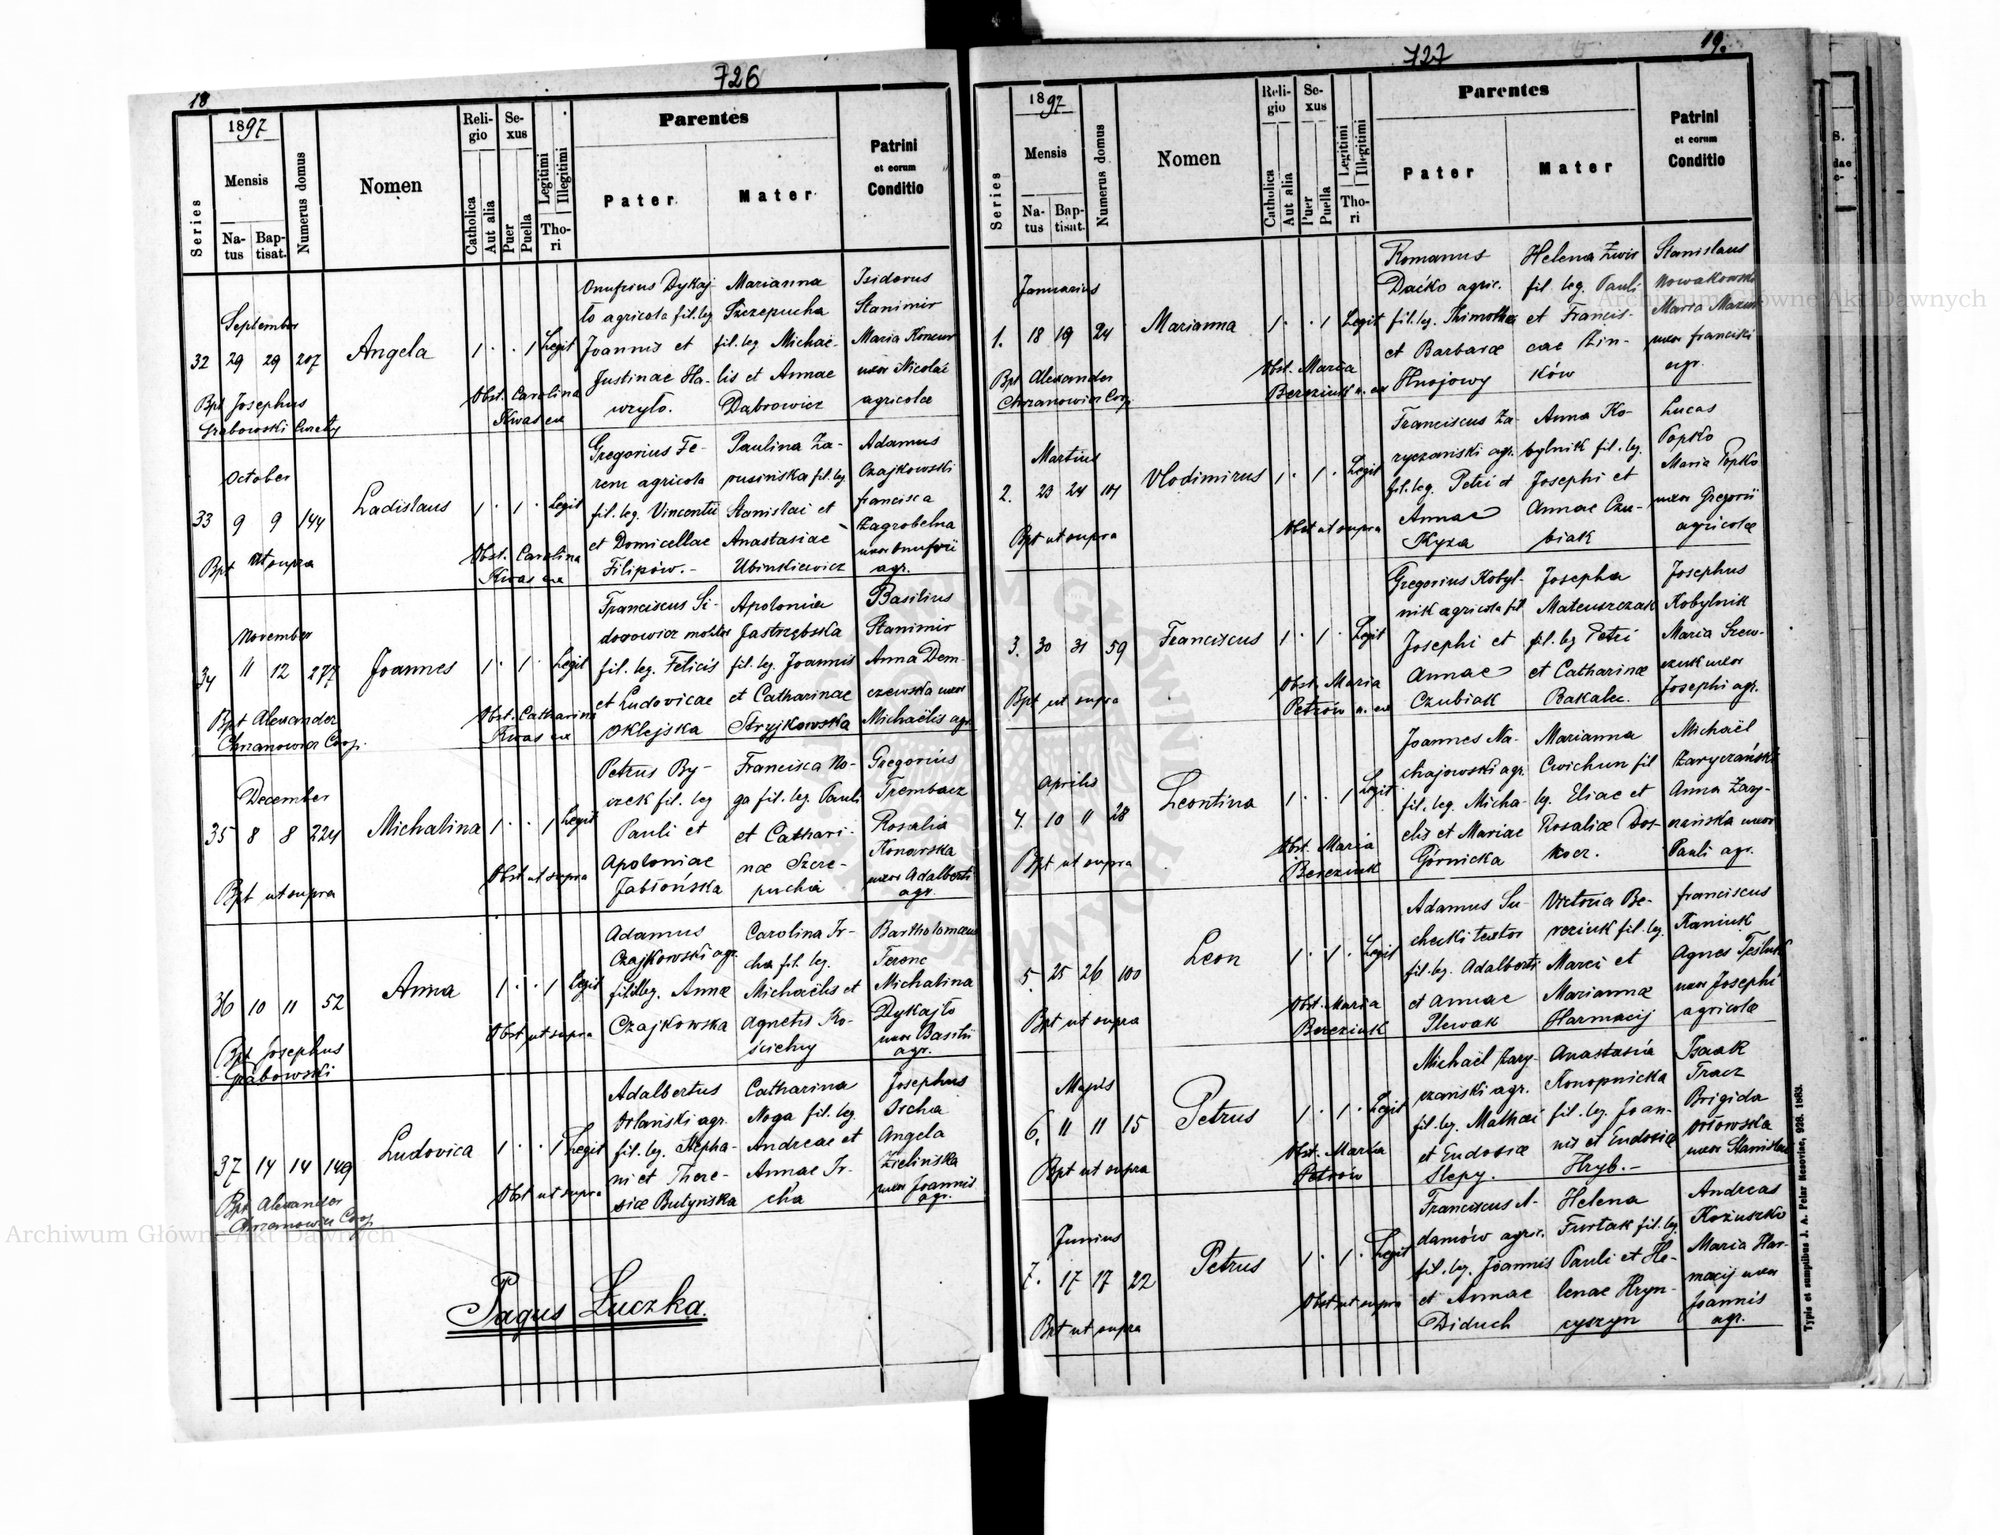 18
726
1897
Series
Mensis
Natus
Baptisat.
Numerus domus
Nomen
Religio
Catholica
Aut alia
Sexus
Puer
Puella
Legitimi
Illegitimi
Thori
Parentes
Pater
Mater
Patrini
et eorum
Conditio
September
32 29 29 207 Angela 1 · · 1 Legit
Bpt Josephus
Grabowski
Obst. Carolina
Kwas ex
Onufrius Dykaj-
ło agricola fil. leg
Joannis et
Justinae Ha-
wryło.
Marianna
Szczepucha
fil. leg Michae-
lis et Annae
Dąbrowicz
Isidorus
Stanimir
Maria
uxor Nicolai
agricolae
October
33 9 9 144 Ladislaus 1 · 1 · Legit
Bpt ut supra
Obst. Carolina
Kwas ex
Gregorius Fe-
renc agricola
fil. leg. Vincentii
et Domicellae
Filipów.-
Paulina Za-
rusińska fil. leg
Stanislai et
Anastasiae
Ubinkiewicz
Adamus
Czajkowski
Francisca
Zagrobelna
uxor Onufrii
agr.
November
34 11 12 277 Joannes 1 · 1 · Legit
Bpt Alexander
Chrzanowicz Coop.
Obst. Catharina
Kwas ex
Franciscus Si-
dorowicz molitor
fil. leg. Felicis
et Ludovicae
Oklejska
Apolonia
Jastrzębska
fil. leg. Joannis
et Catharinae
Stryjkowska
Basilius
Stanimir
Anna Dem-
czewska uxor
Michaëlis agr.
December
35 8 8 224 Michalina 1 · · 1 Legit
Bpt ut supra
Obst ut supra
Petrus By-
czek fil. leg
Pauli et
Apoloniae
Jabłońska
Francisca No-
ga fil. leg. Pauli
et Cathari-
nae Szcze-
pucha
Gregorius
Trembacz
Rosalia
Konarska
uxor Adalberti
agr.
36 10 11 52 Anna 1 · · 1 Legit
Bpt Josephus
Grabowski
Obst ut supra
Adamus
Czajkowski agr.
fil illeg. Annae
Czajkowska
Carolina Ir-
cha fil. leg.
Michaëlis et
Agnetis Ko-
ścielny
Bartholomaeus
Ferenc
Michalina
Dykajło
uxor Basilii
agr.
37 14 14 149 Ludovica 1 · · 1 Legit
Bpt Alexander
Chrzanowicz Coop.
Obst ut supra
Adalbertus
Orlański agr.
fil. leg. Stepha-
ni et There-
siae Butyńska
Catharina
Noga fil. leg.
Andreae et
Annae Ir-
cha
Josephus
Ircha
Angela
Zielińska
uxor Joannis
agr.
Pagus Łuczka.
Archiwum Główne Akt Dawnych
727
19.
1897
Series
Mensis
Natus
Baptisat.
Numerus domus
Nomen
Religio
Catholica
Aut alia
Sexus
Puer
Puella
Legitimi
Illegitimi
Thori
Parentes
Pater
Mater
Patrini
et eorum
Conditio
Januarius
1. 18 19 24 Marianna 1 · · 1 Legit
Bpt Alexander
Chrzanowicz Coop.
Obst. Maria
Bereziuk n. ex
Romanus
Daćko agric.
fil. leg. Thimothei
et Barbarae
Hnojowy
Helena Zwir
fil. leg. Pauli
et Francis-
cae Zin-
ków
Stanislaus
Nowakowski
Maria
uxor Francisci
agr.
Martius
2. 23 24 101 Vlodimirus 1 · 1 · Legit
Bpt ut supra
Obst ut supra
Franciscus Za-
ryczański agr.
fil. leg. Petri et
Annae
Kyza
Anna Ko-
bylnik fil. leg.
Josephi et
Annae Czu-
biak
Lucas
Popko
Maria Popko
uxor Gregorii
agricolae
3. 30 31 59 Franciscus 1 · 1 · Legit
Bpt ut supra
Obst. Maria
Petrów n. ex
Gregorius Kobyl-
nik agricola fil.
Josephi et
Annae
Czubiak
Josepha
Mateuszczak
fil. leg Petri
et Catharinae
Bakalec.
Josephus
Kobylnik
Maria Szew-
czuk uxor
Josephi agr.
Aprilis
4. 10 11 28 Leontina 1 · · 1 Legit
Bpt ut supra
Obst. Maria
Bereziuk
Joannes Na-
chajowski agr.
fil. leg. Micha-
elis et Mariae
Górnicka
Marianna
Cwichun fil
leg. Eliae et
Rosaliae Dos-
kocz.
Michaël
Zaryczański
Anna Zary-
czańska uxor
Pauli agr.
5. 25 26 100 Leon 1 · 1 · Legit
Bpt ut supra
Obst. Maria
Bereziuk
Adamus Su-
checki textor
fil. leg. Adalberti
et Annae
Plewak
Victoria Be-
reziuk fil. leg.
Marci et
Mariannae
Harmacij
Franciscus
Kaniuk
Agnes
uxor Josephi
agricolae
Majus
6. 11 11 15 Petrus 1 · 1 · Legit
Bpt ut supra
Obst. Maria
Petrów
Michaël Zary-
czański agr.
fil. leg. Mathaei
et Eudoxiae
Slepy.
Anastasia
Konopnicka
fil. leg. Joan-
nis et Eudoxiae
Hryb.-
Isaak
Tracz
Brigida
Orłowska
uxor Stanislai
Junius
7. 17 17 22 Petrus 1 · 1 · Legit
Bpt ut supra
Obst ut supra
Franciscus A-
damów agric.
fil. leg. Joannis
et Annae
Diduch
Helena
Furtak fil. leg
Pauli et He-
lenae Hryn-
cyszyn
Andreas
Kożuszko
Maria Har-
macij uxor
Joannis
agr.
Typis et sumptibus J. A. Pelar Resoviae, 928. 1883.
Archiwum Główne Akt Dawnych